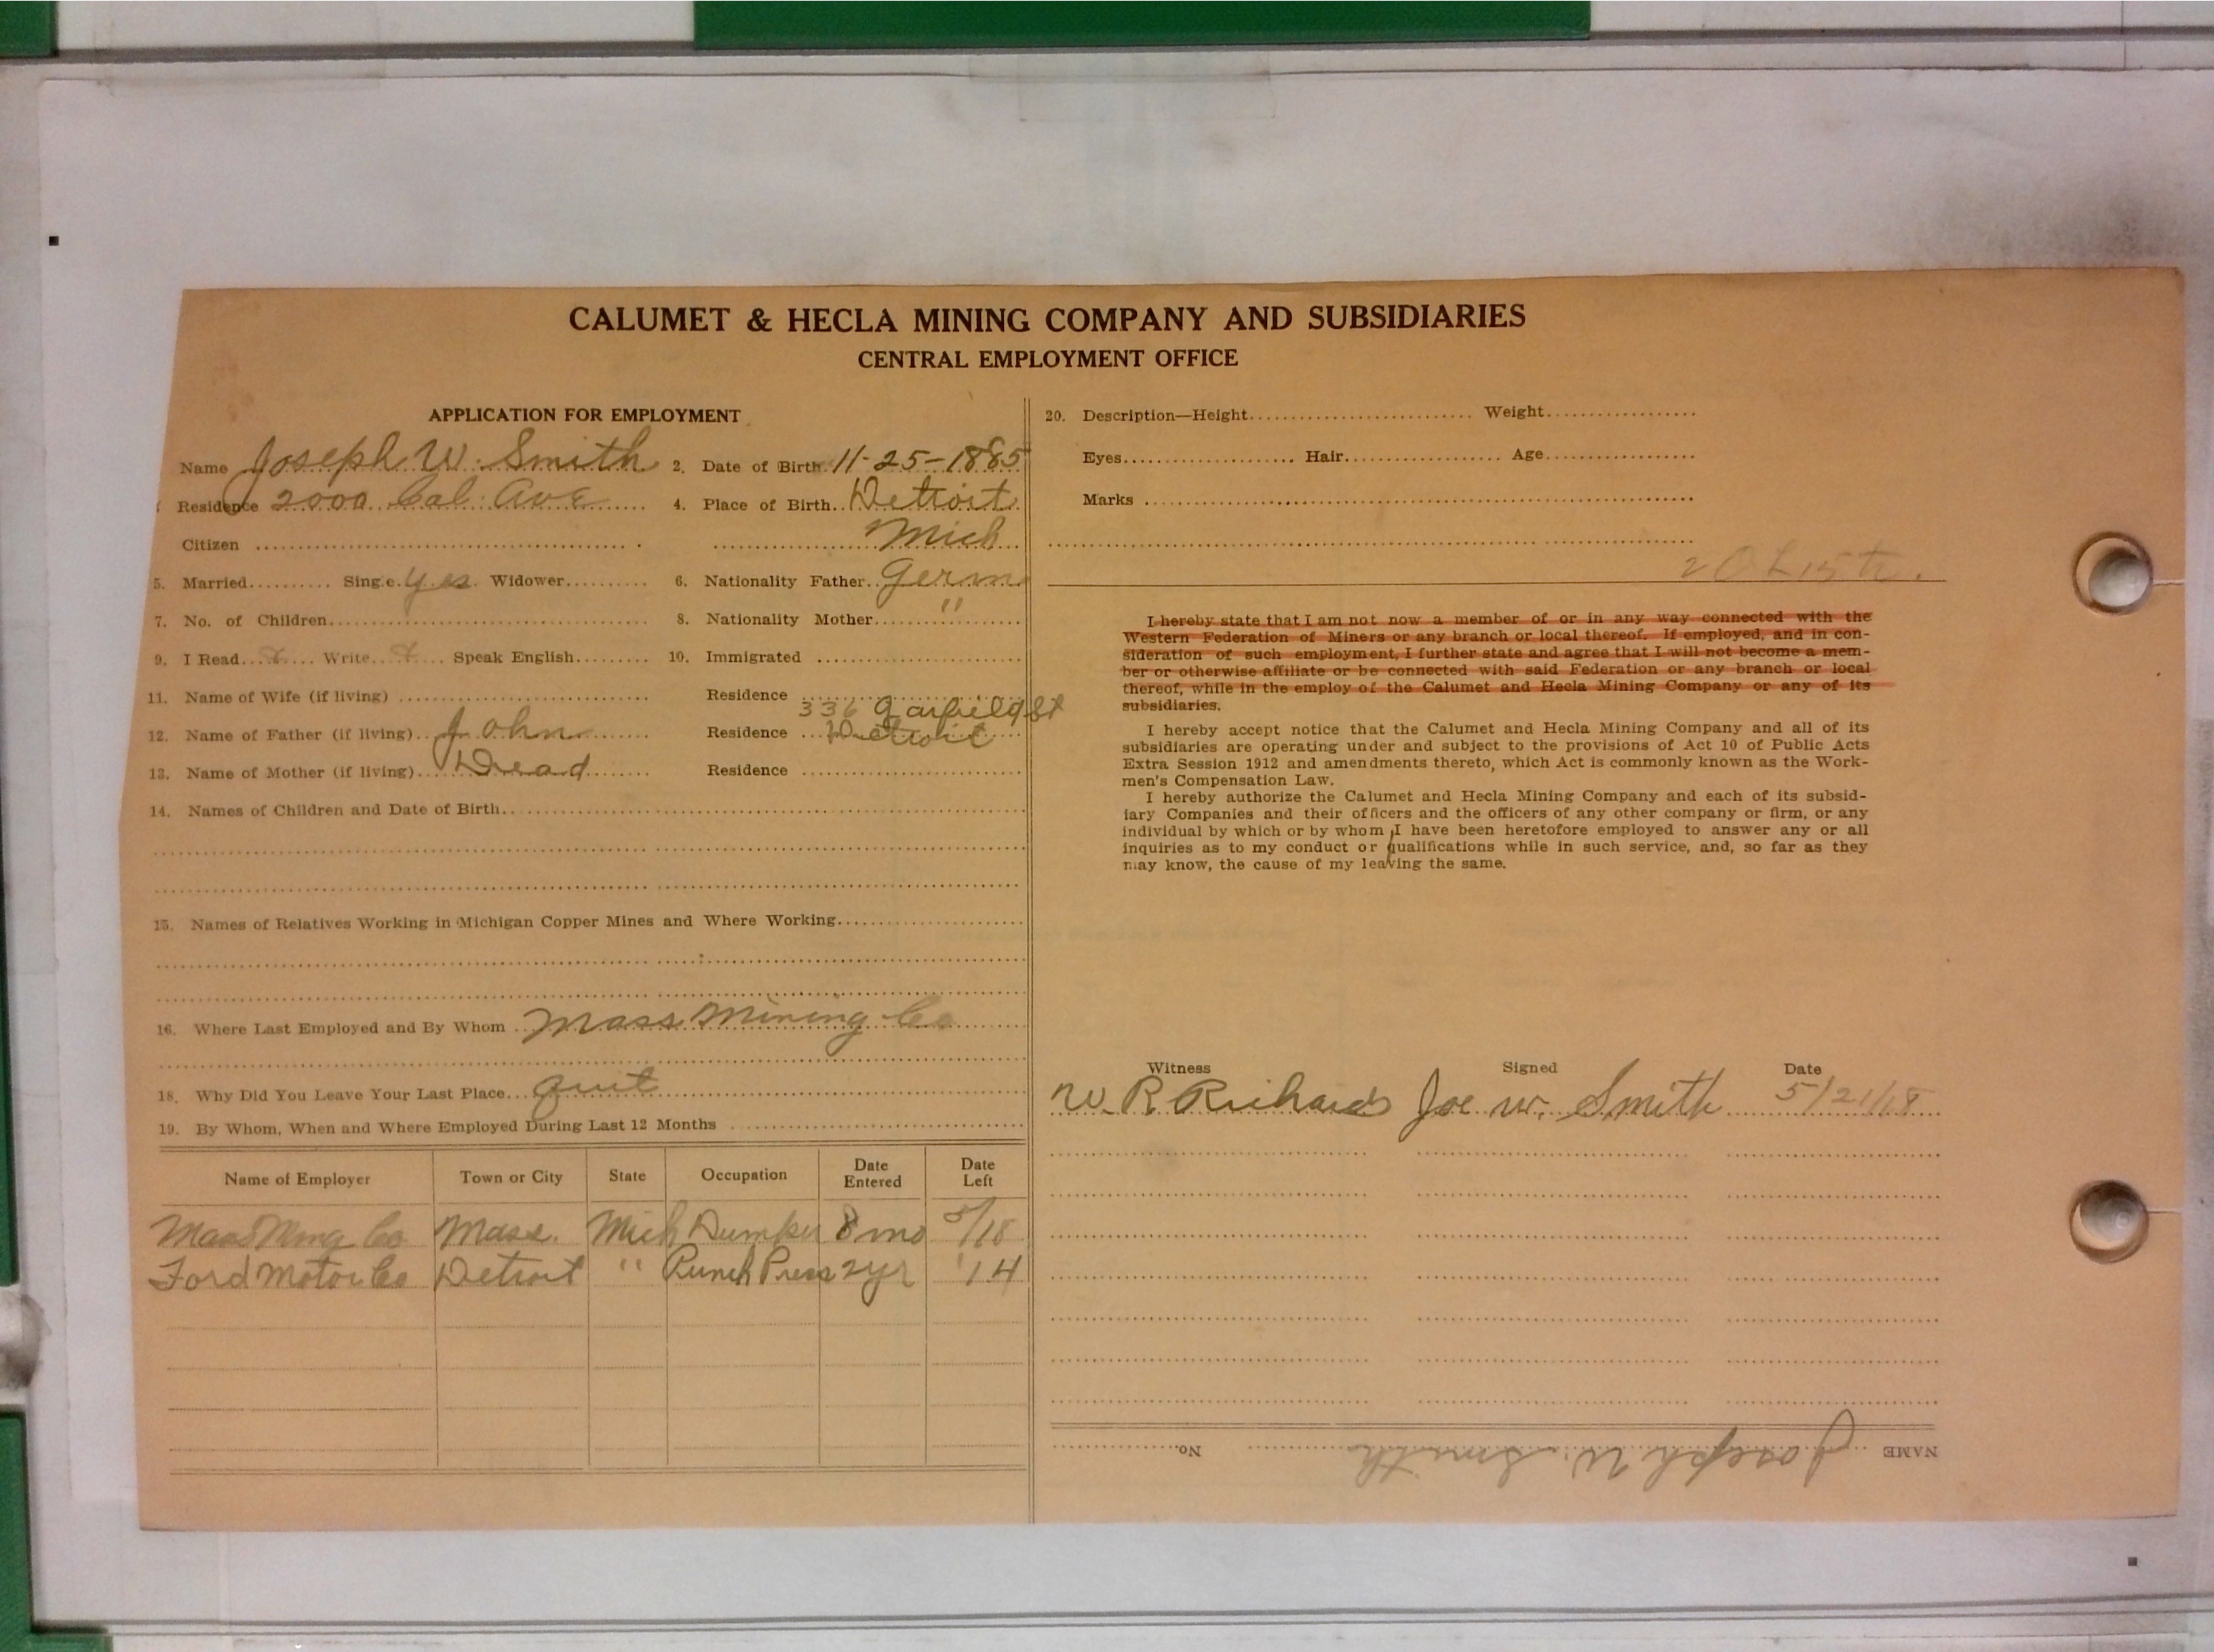 CALUMET & HECLA MINING COMPANY AND SUBSIDIARIES
CENTRAL EMPLOYMENT OFFICE
APPLICATION FOR EMPLOYMENT
Name Joseph W. Smith 2. Date of Birth 11-25-1885
Residence 2000 Cal. Ave 4. Place of Birth Detroit
Citizen Mich
5. Married Single yes Widower 6. Nationality Father Germ
7. No. of Children 8. Nationality Mother "
9. I Read Write Speak English 10. Immigrated
11. Name of Wife (if living) Residence
336 Garfield St
12. Name of Father (if living) John Residence Detroit
13. Name of Mother (if living) Dead Residence
14. Names of Children and Date of Birth
15. Names of Relatives Working in Michigan Copper Mines and Where Working
16. Where Last Employed and By Whom Mass Mining Co
18. Why Did You Leave Your Last Place quit
19. By Whom, When and Where Employed During Last 12 Months
Name of Employer Town or City State Occupation Date Entered Date Left
Mass Mng Co Mass. Mich Dumper 8 mo 5/18
Ford Motor Co Detroit " Punch Press 2 yr '14
20. Description—Height Weight
Eyes Hair Age
Marks
I hereby state that I am not now a member of or in any way connected with the
Western Federation of Miners or any branch or local thereof. If employed, and in con-
sideration of such employment, I further state and agree that I will not become a mem-
ber or otherwise affiliate or be connected with said Federation or any branch or local
thereof, while in the employ of the Calumet and Hecla Mining Company or any of its
subsidiaries.
I hereby accept notice that the Calumet and Hecla Mining Company and all of its
subsidiaries are operating under and subject to the provisions of Act 10 of Public Acts
Extra Session 1912 and amendments thereto, which Act is commonly known as the Work-
men's Compensation Law.
I hereby authorize the Calumet and Hecla Mining Company and each of its subsid-
iary Companies and their officers and the officers of any other company or firm, or any
individual by which or by whom I have been heretofore employed to answer any or all
inquiries as to my conduct or qualifications while in such service, and, so far as they
may know, the cause of my leaving the same.
Witness Signed Date
W. R Richards Joe W. Smith 5/21/18
NAME Joseph W. Smith No.